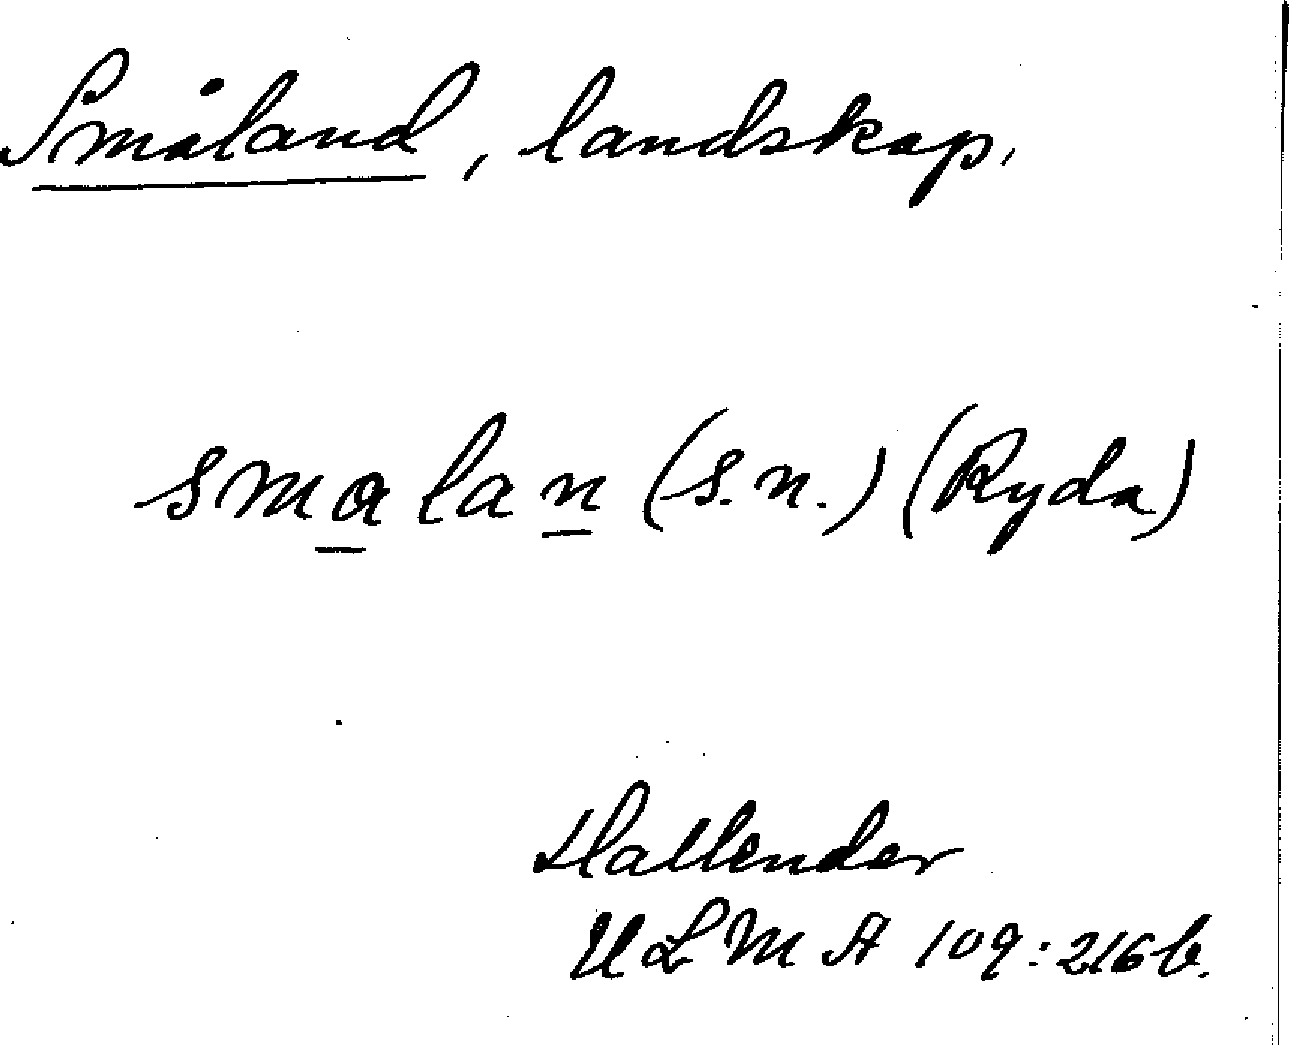 Småland, landskap.
smalan (s.n.) (Ryda)
Hallender
ULMA 109:216b.